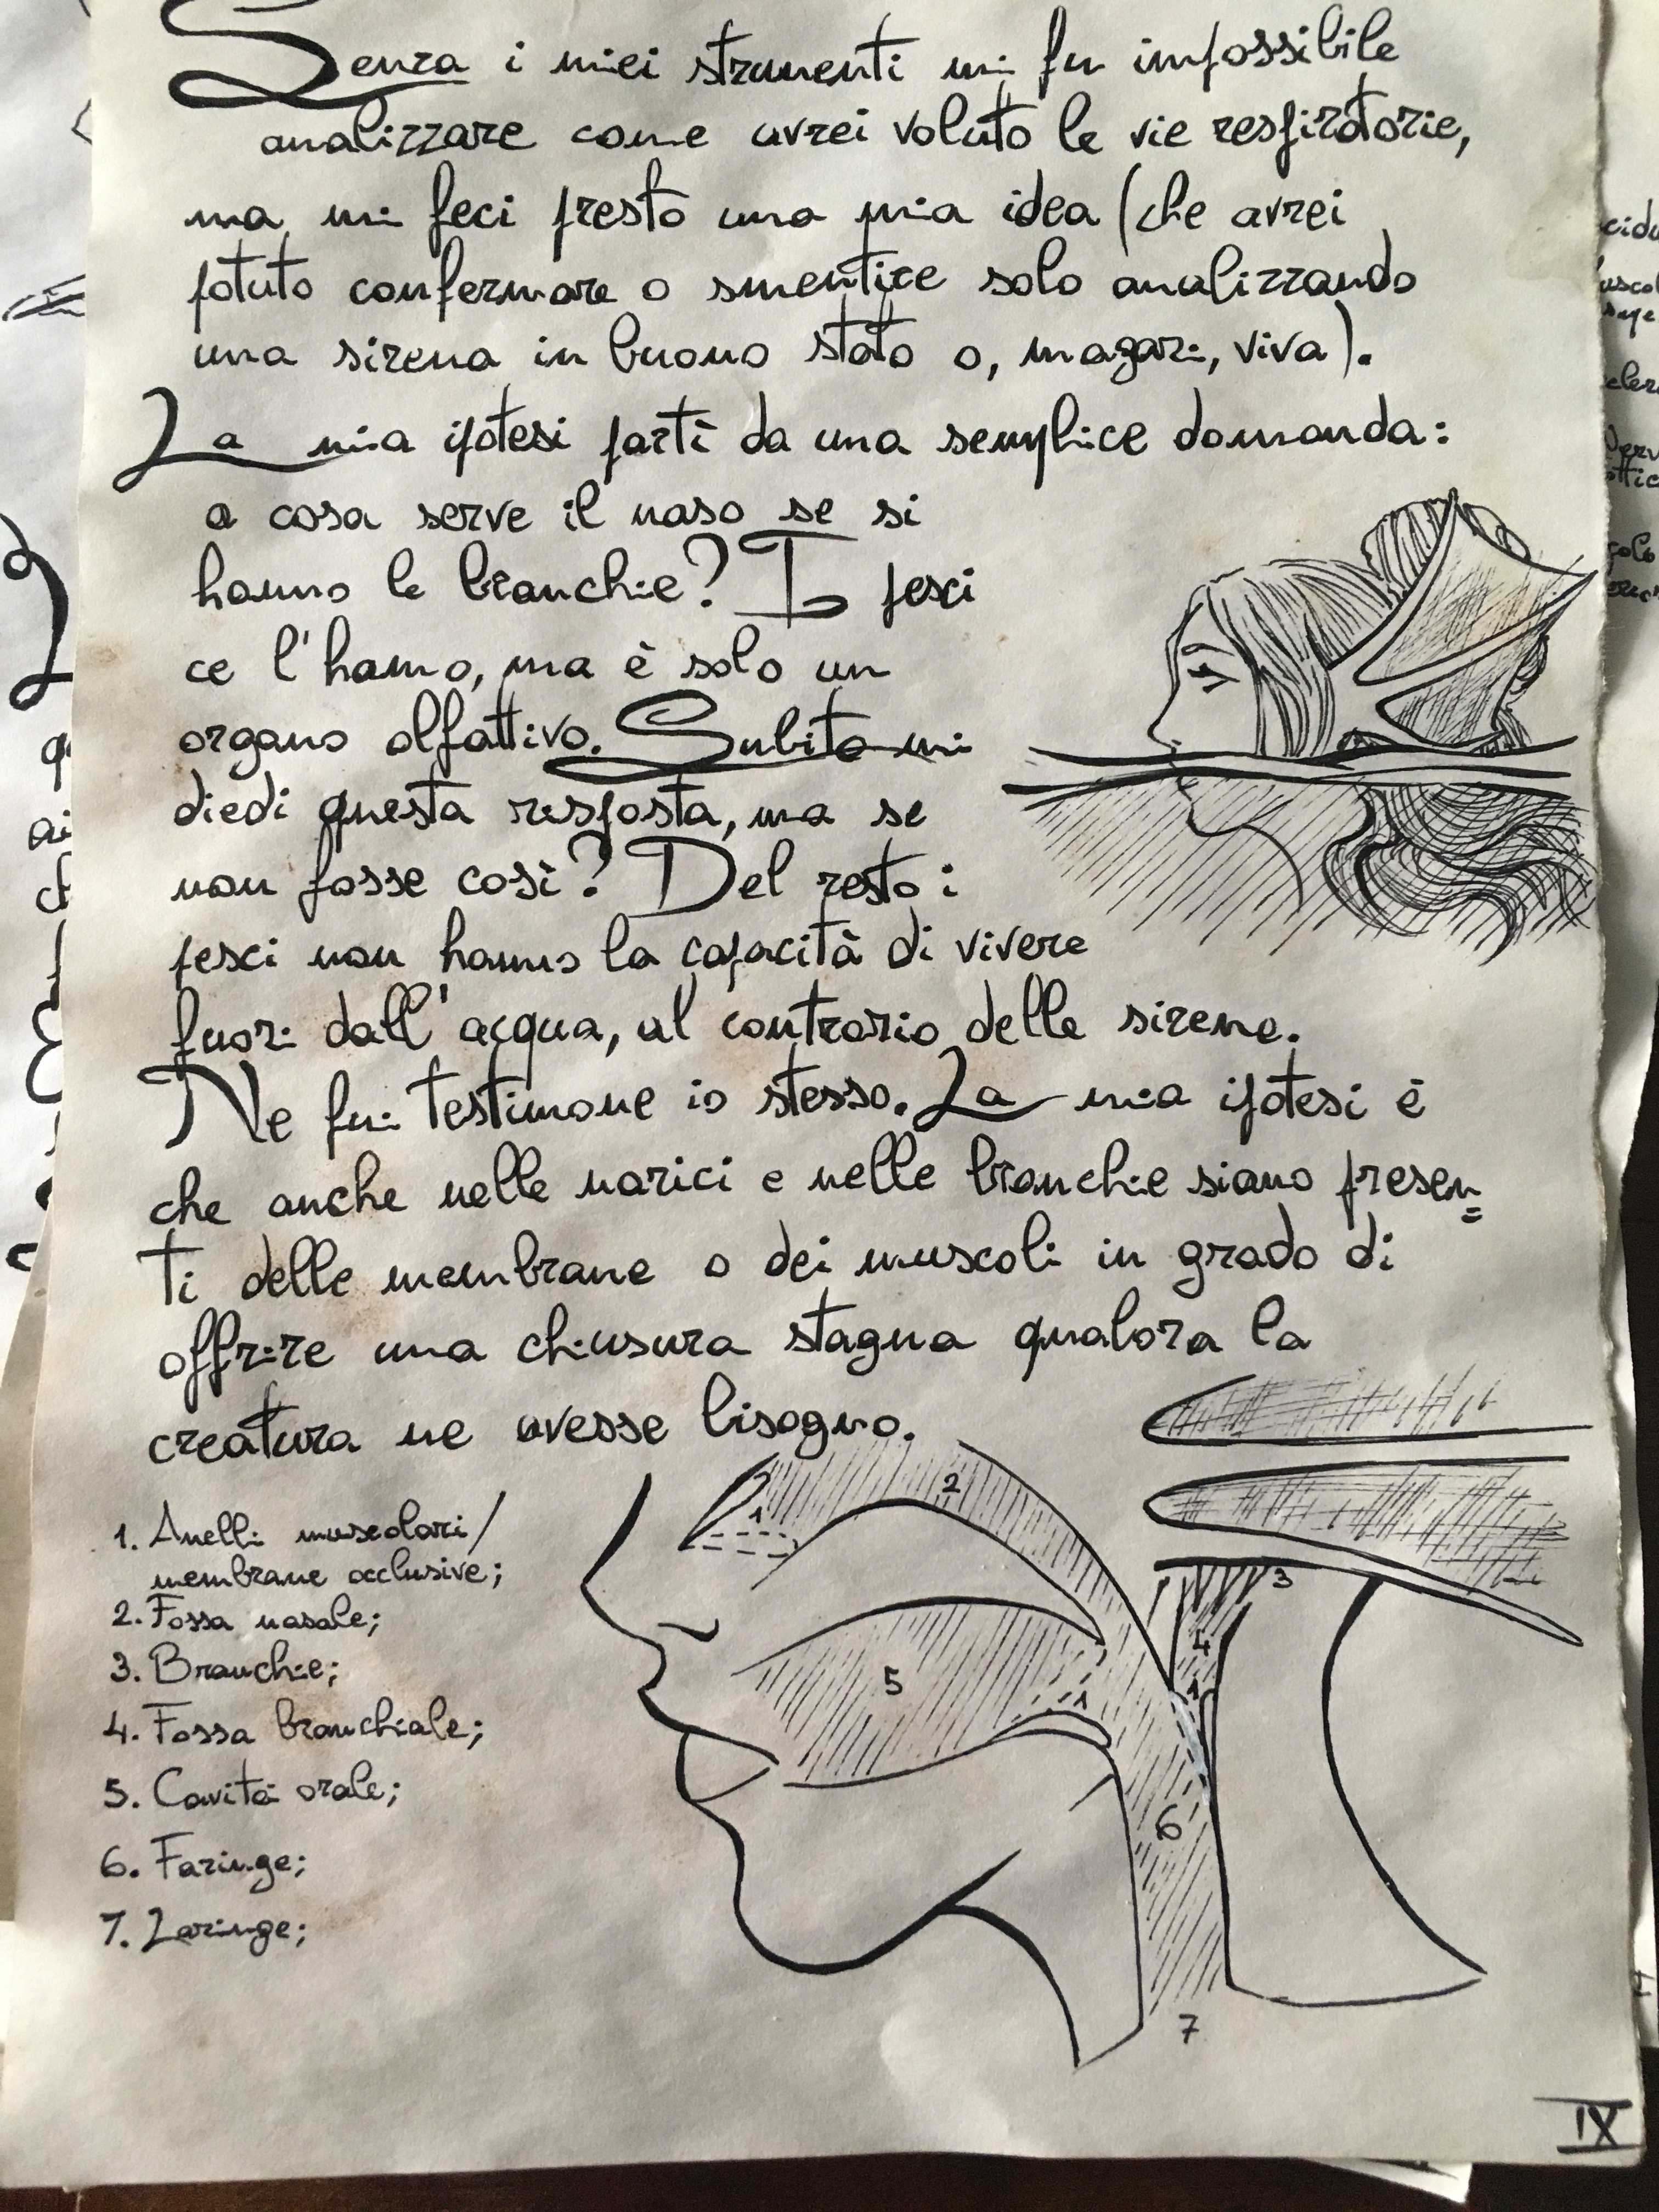 Senza i miei strumenti mi fu impossibile
analizzare come avrei voluto le vie respiratorie,
ma mi feci presto una mia idea (che avrei
potuto confermare o smentire solo analizzando
una sirena in buono stato o, magari, viva).
La mia ipotesi partì da una semplice domanda:
a cosa serve il naso se si
hanno le branchie? I pesci
ce l'hanno, ma è solo un
organo olfattivo. Subito mi
diedi questa risposta, ma se
non fosse così? Del resto i
pesci non hanno la capacità di vivere
fuori dall'acqua, al contrario delle sirene.
Ne fui testimone io stesso. La mia ipotesi è
che anche nelle narici e nelle branchie siano presen=
ti delle membrane o dei muscoli in grado di
offrire una chiusura stagna qualora la
creatura ne avesse bisogno.
1. Anelli muscolari/
membrane occlusive;
2. Fossa nasale;
3. Branchie;
4. Fossa branchiale;
5. Cavità orale;
6. Faringe;
7. Laringe;
1
2
3
4
5
1
1
6
7
IX